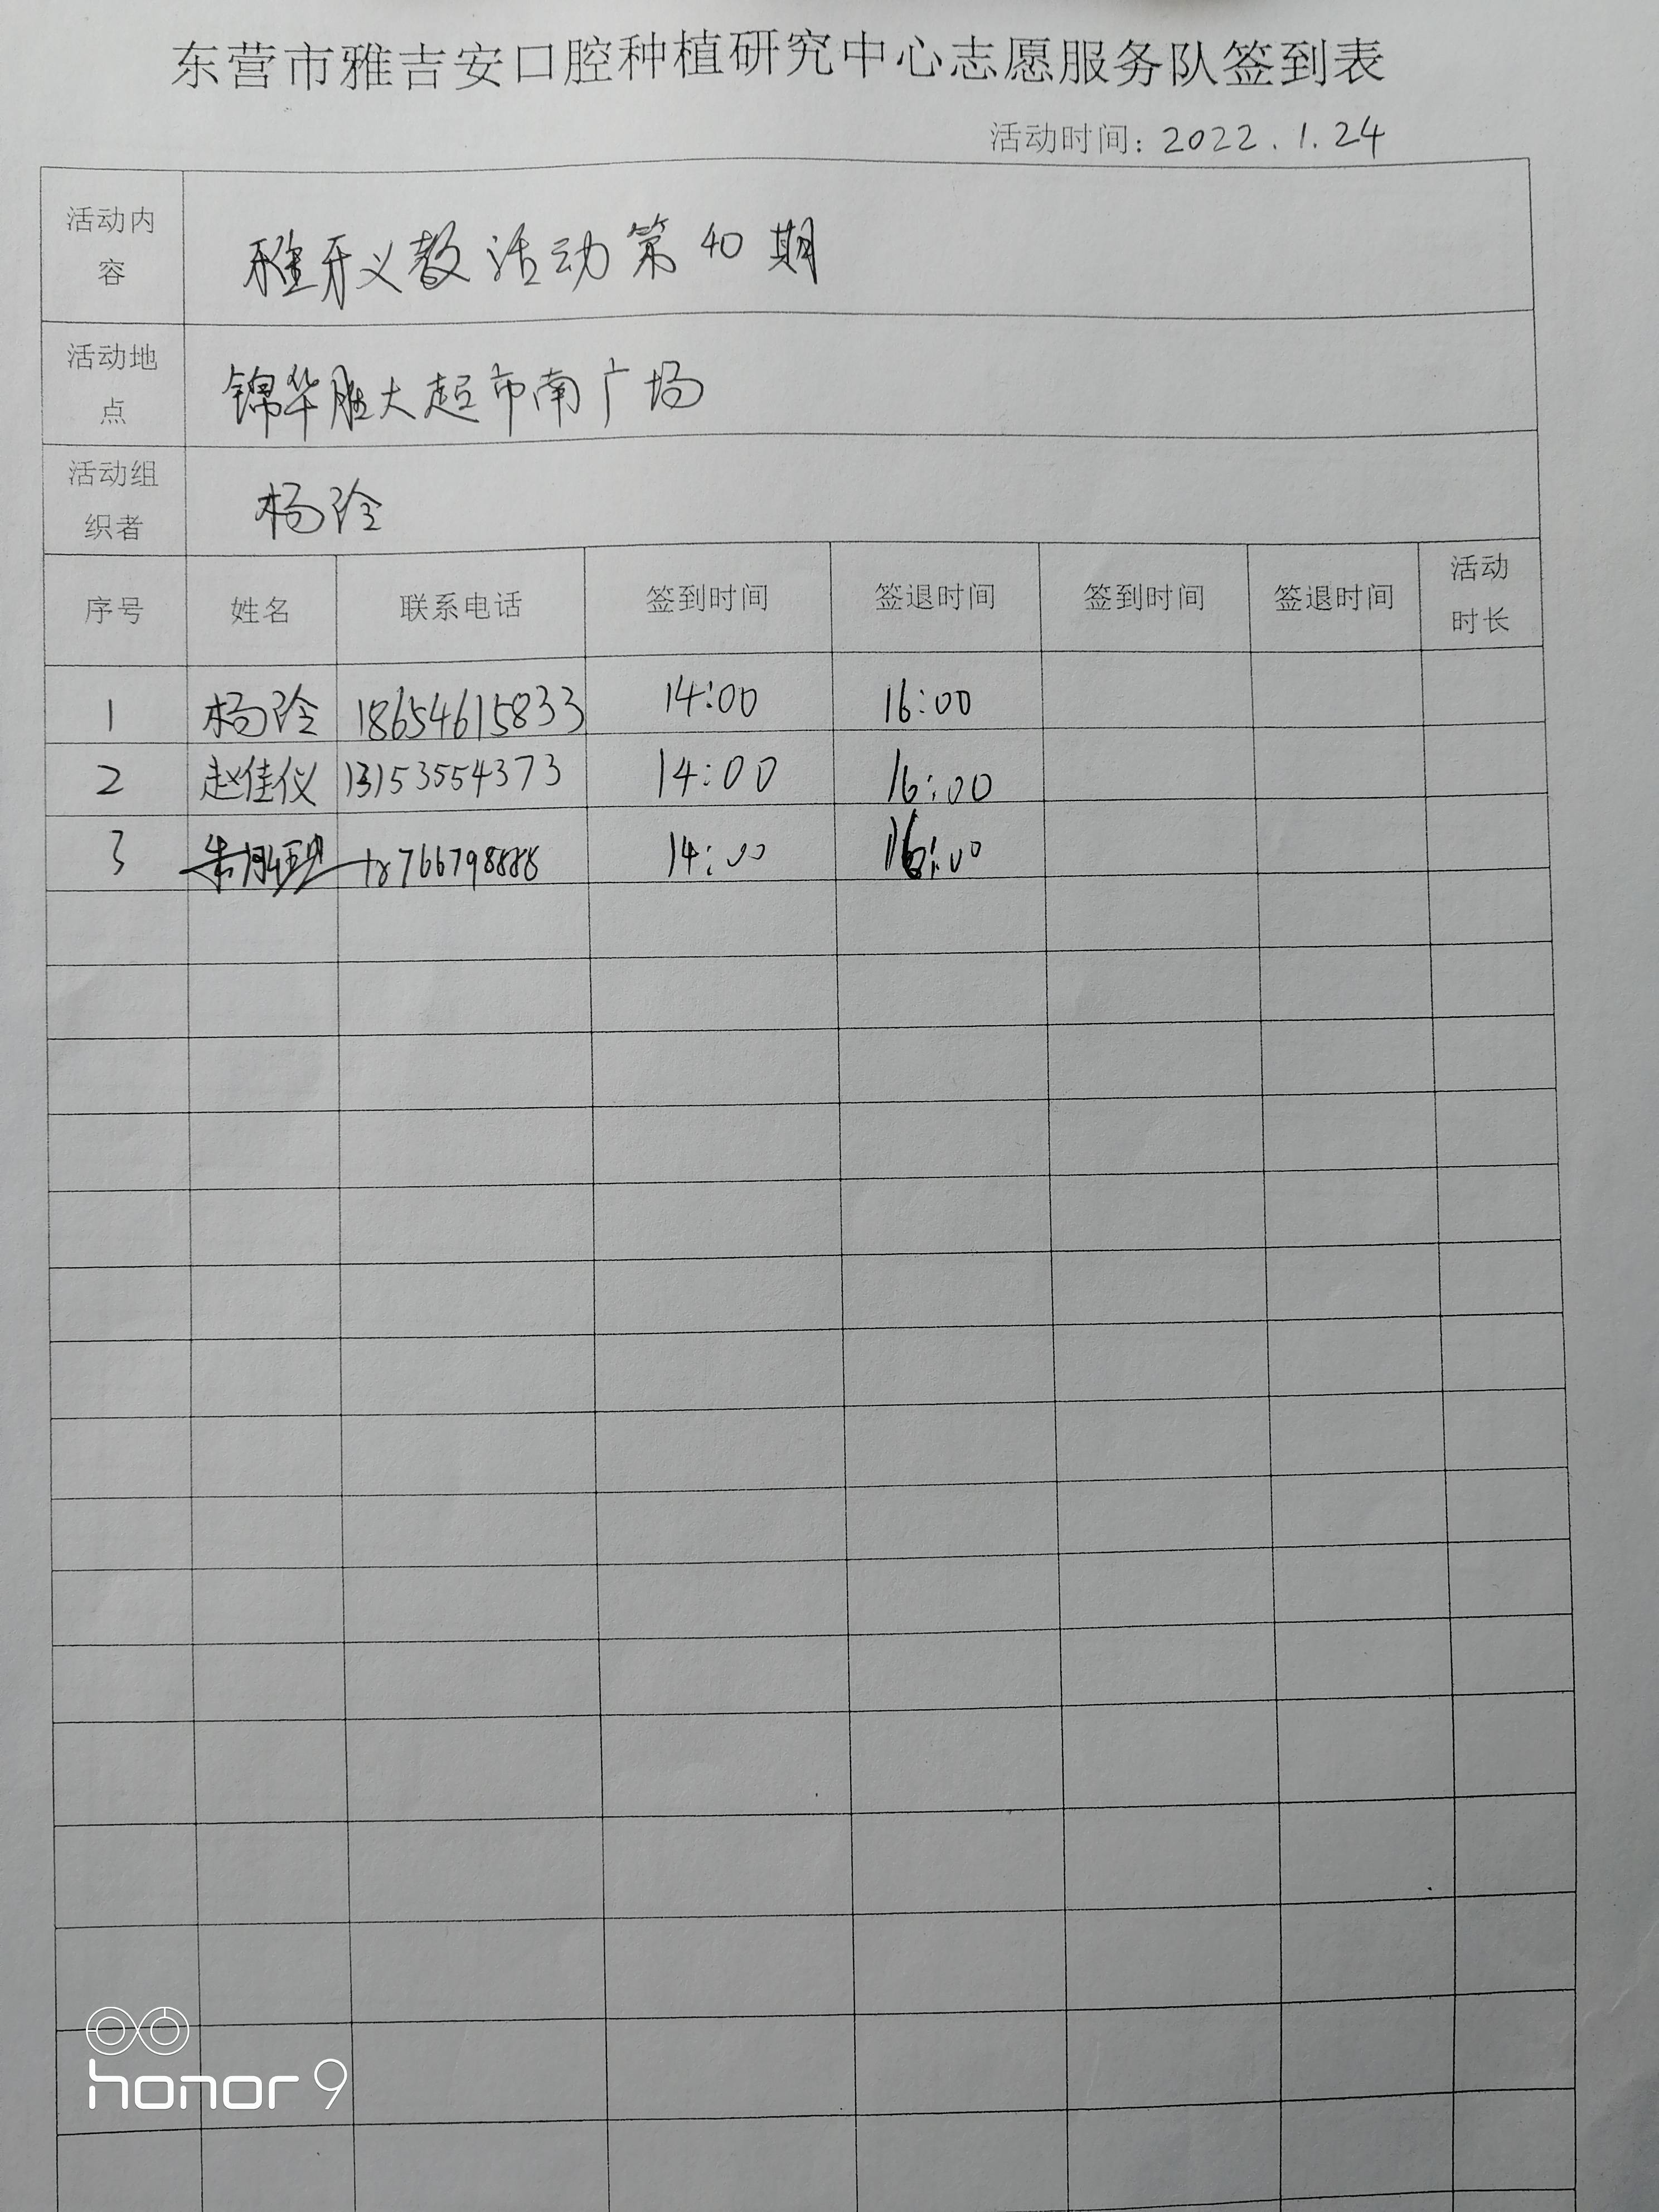 东营市雅吉安口腔种植研究中心志愿服务队签到表
活动时间: 2022.1.24
活动内容 雅牙义教活动第40期
活动地点 锦华胜大超市南广场
活动组织者 杨玲
序号 姓名 联系电话 签到时间 签退时间 签到时间 签退时间 活动时长
1 杨玲 18654615833 14:00 16:00
2 赵佳仪 13153554373 14:00 16:00
3 朱 18766798888 14:00 16:00
honor 9